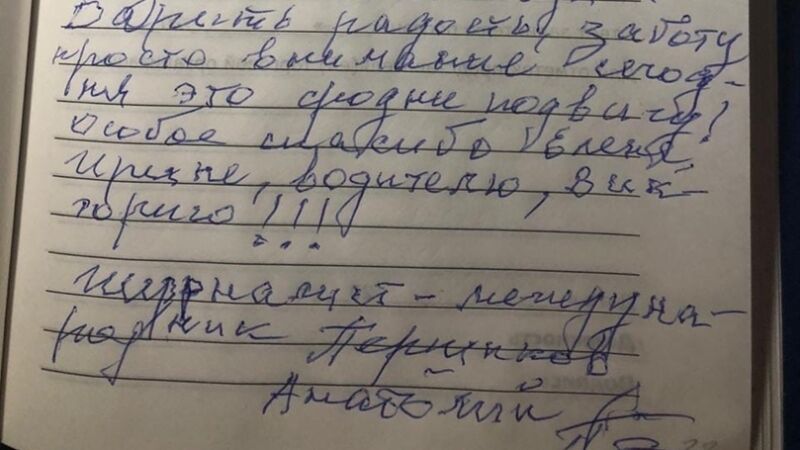 Дарить радость, заботу
просто внимание сегод-
ня это сродни подвигу!
Особое спасибо Елене,
Ирине, водителю, Вик-
торию!!!
Журналист-междуна-
родник Першиков
Анатолий